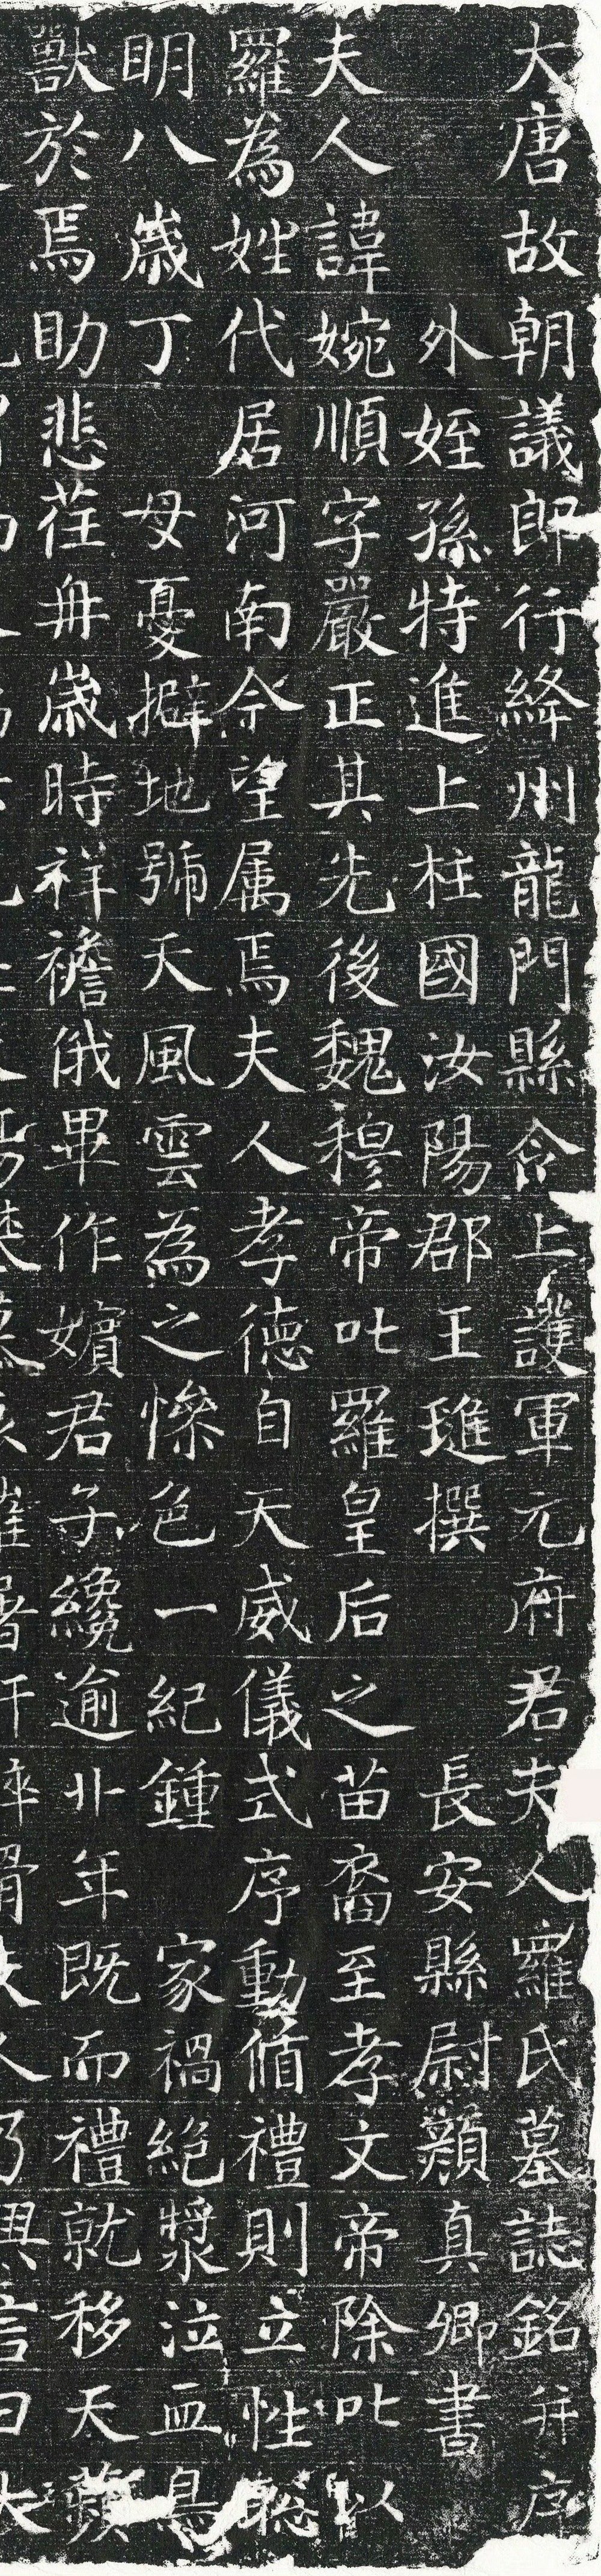 大唐故朝議郎行絳州龍門縣令上護軍元府君夫人羅氏墓誌銘并序
外姪孫特進上柱國汝陽郡王璡撰 長安縣尉顏真卿書
夫人諱婉順字嚴正其先後魏穆帝叱羅皇后之苗裔至孝文帝除叱以
羅為姓代居河南今望属焉夫人孝德自天威儀式序動循禮則立性聰
明八歲丁 母憂擗地號天風雲為之慘色一紀鍾 家禍絕漿泣血鳥
獸於焉助悲荏苒歲時祥襜俄畢作嬪君子纔逾卝年既而禮就移天蘋